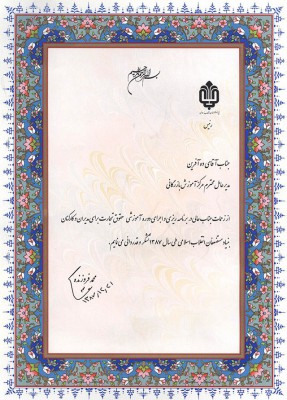 بسم الله الرحمن الرحیم
رئیس
جناب آقای ده آفرین
مدیرعامل محترم مرکز آموزش بازرگانی
از زحمات جنابعالی در برنامه ریزی و اجرای دوره آموزشی حقوق تجارت برای مدیران و کارکنان
بنیاد مستضعفان انقلاب اسلامی طی سال ۱۳۸۷ تشکر و قدردانی می نمایم.
محمد فروزنده